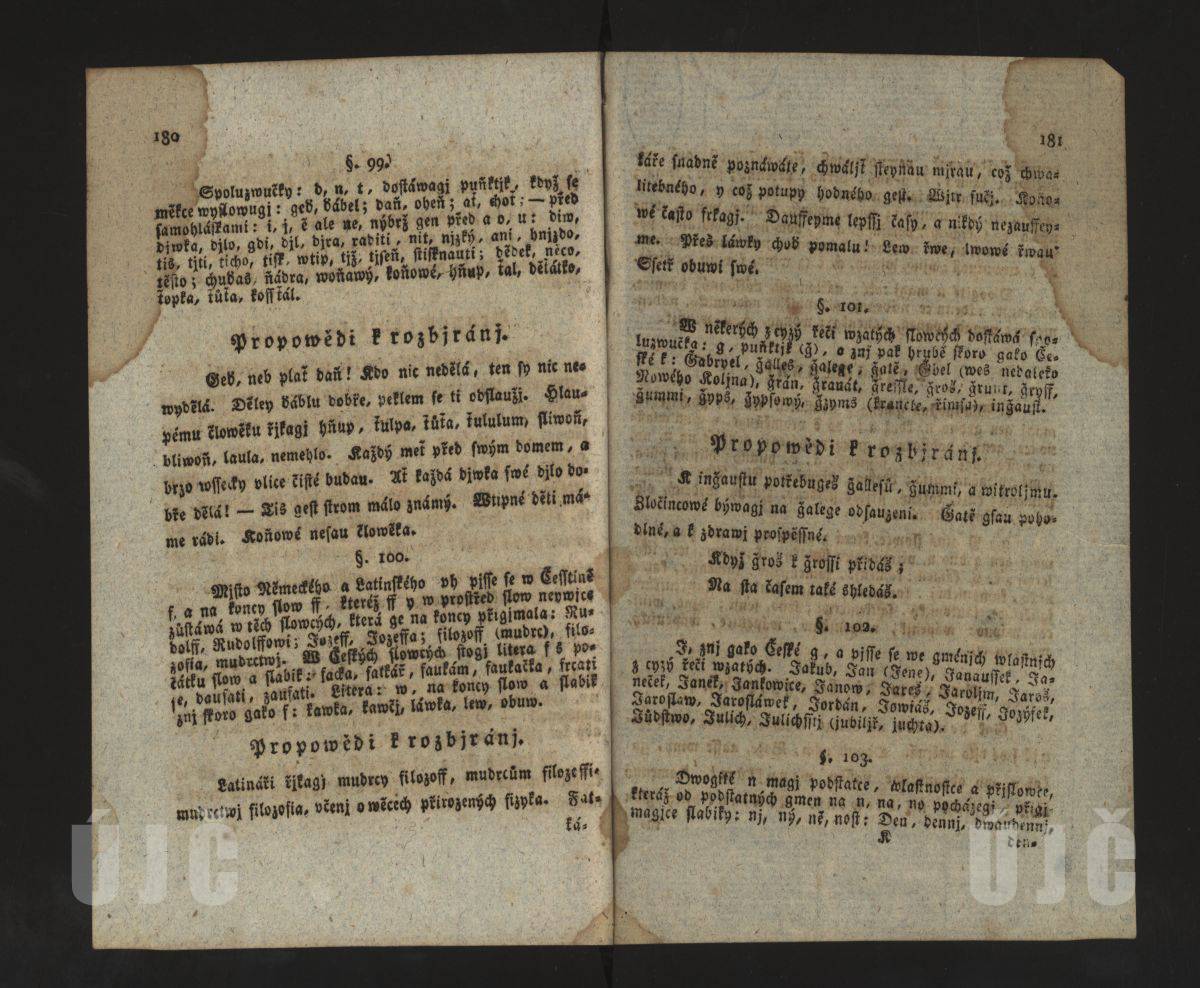 180
§. 99.
Spoluzwučky: d, n, t, dostáwagj puňktjk, když se
měkce wyslowugj: geď, ďábel; daň, oheň; ať, choť; — před
samohláskami: i, j, ě ale ne, nýbrž gen před a o, u: diw,
djwka, djlo, gdi, djl, djra, raditi, nit, njzký, ani, hnjzdo,
tis, tjti, ticho, tisk, wtip, tjž, tjseň, stisknauti; dědek, něco,
těsto; chuďas, ňádra, woňawý, koňowé, hňup, ťal, dělátko,
ťopka, ťůťa, košťál.
Propowědi k rozbjránj.
Geď, neb plať daň! Kdo nic nedělá, ten sy nic ne-
wydělá. Děley ďáblu dobře, peklem se ti odslaužj. Hlau-
pému člowěku řjkagj hňup, ťulpa, ťůťa, ťululum, sliwoň,
bliwoň, laula, nemehlo. Každý meť před swým domem, a
brzo wssecky vlice čisté budau. Ať každá djwka swé djlo do-
bře dělá! — Tis gest strom málo známý. Wtipné děti má-
me rádi. Koňowé nesau člowěka.
§. 100.
Mjsto Německého a Latinského ph pjsse se w Česstině
f, a na koncy slow ff, kteréž ff y w prostřed slow neywjce
zůstáwá w těch slowcých, která ge na koncy přigjmala: Ru-
dolff, Rudolffowi; Jozeff, Jozeffa; filozoff (mudrc), filo-
zofia, mudrctwj. W Českých slowcých stogj litera f s po-
čátku slow a slabik: facka, falkář, faukám, faukačka, frcati
se, daufati, zaufati. Litera: w, na koncy slow a slabik
znj skoro gako f: kawka, kawčj, láwka, lew, obuw.
Propowědi k rozbjránj.
Latináři řjkagj mudrcy filozoff, mudrcům filozoffi-
mudrctwj filozofia, včenj o wěcech přirozených fizyka. Fal-
ká-
181
káře snadně poznáwáte, chwáljť steynau mjrau, což chwa-
litebného, y což potupy hodného gest. Wjtr fučj. Koňo-
wé často frkagj. Dauffeyme lepssj časy, a nikdý nezauffey-
me. Přes láwky choď pomalu! Lew řwe, lwowé řwau
Ssetř obuwi swé.
§. 101.
W některých z cyzý řeči wzatých slowcých dostáwá spo-
luzwučka: g, puňktjk (ğ), a znj pak hrubě skoro gako Če-
ské k: Ğabryel, ğalles, ğalege, ğatě, Ğbel (wes nedaleko
Nowého Koljna), ğrán, ğranát, ğreffle, ğroš, ğrunt, ğryff,
ğummi, ğyps, ğypsowý, ğzyms (krancle, řimsa), inğaust.
Propowědi k rozbjránj.
K inğaustu potřebugeš ğallesů, ğummi, a witroljmu.
Zločincowé býwagj na ğalege odsauzeni. Ğatě gsau poho-
dlné, a k zdrawj prospěssné.
Když ğroš k ğrossi přidáš;
Na sta časem také shledáš.
§. 102.
J, znj gako České g, a pjsse se we gménjch wlastnjch
z cyzý řeči wzatých. Jakub, Jan (Jene), Janaussek, Ja-
neček, Janek, Jankowice, Janow, Jareš, Jaroljm, Jaroš,
Jaroslaw, Jarosláwek, Jordán, Jowiáš, Jozeff, Jozýfek,
Jůdstwo, Julich, Julichsstj (jubiljř, juchta).
§. 103.
Dwogité n magj podstatce, wlastnostce a přjslowce,
kteráž od podstatných gmen na n, na, no pocházegj, přigj-
magjce slabiky: nj, ný, ně, nost: Den, dennj, dwaudennj,
K
den-
ÚJČ
ÚJČ